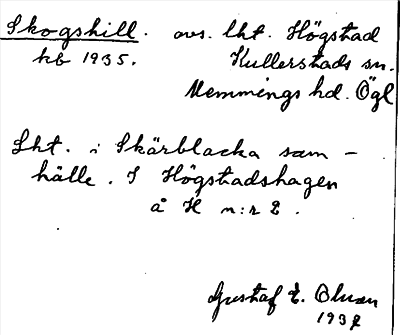 Skogshill. avs. lht. Högstad
hb 1935. Kullerstads sn.
Memmings hd. Ögl
Lht. i Skärblacka sam-
hälle. I Högstadshagen
å H n:r 2.
Gustaf E. Olson
193